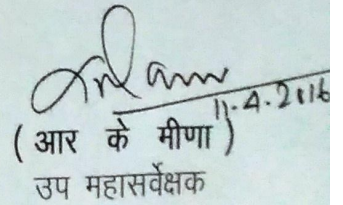 11.4.2016
( आर के मीणा )
उप महासर्वेक्षक